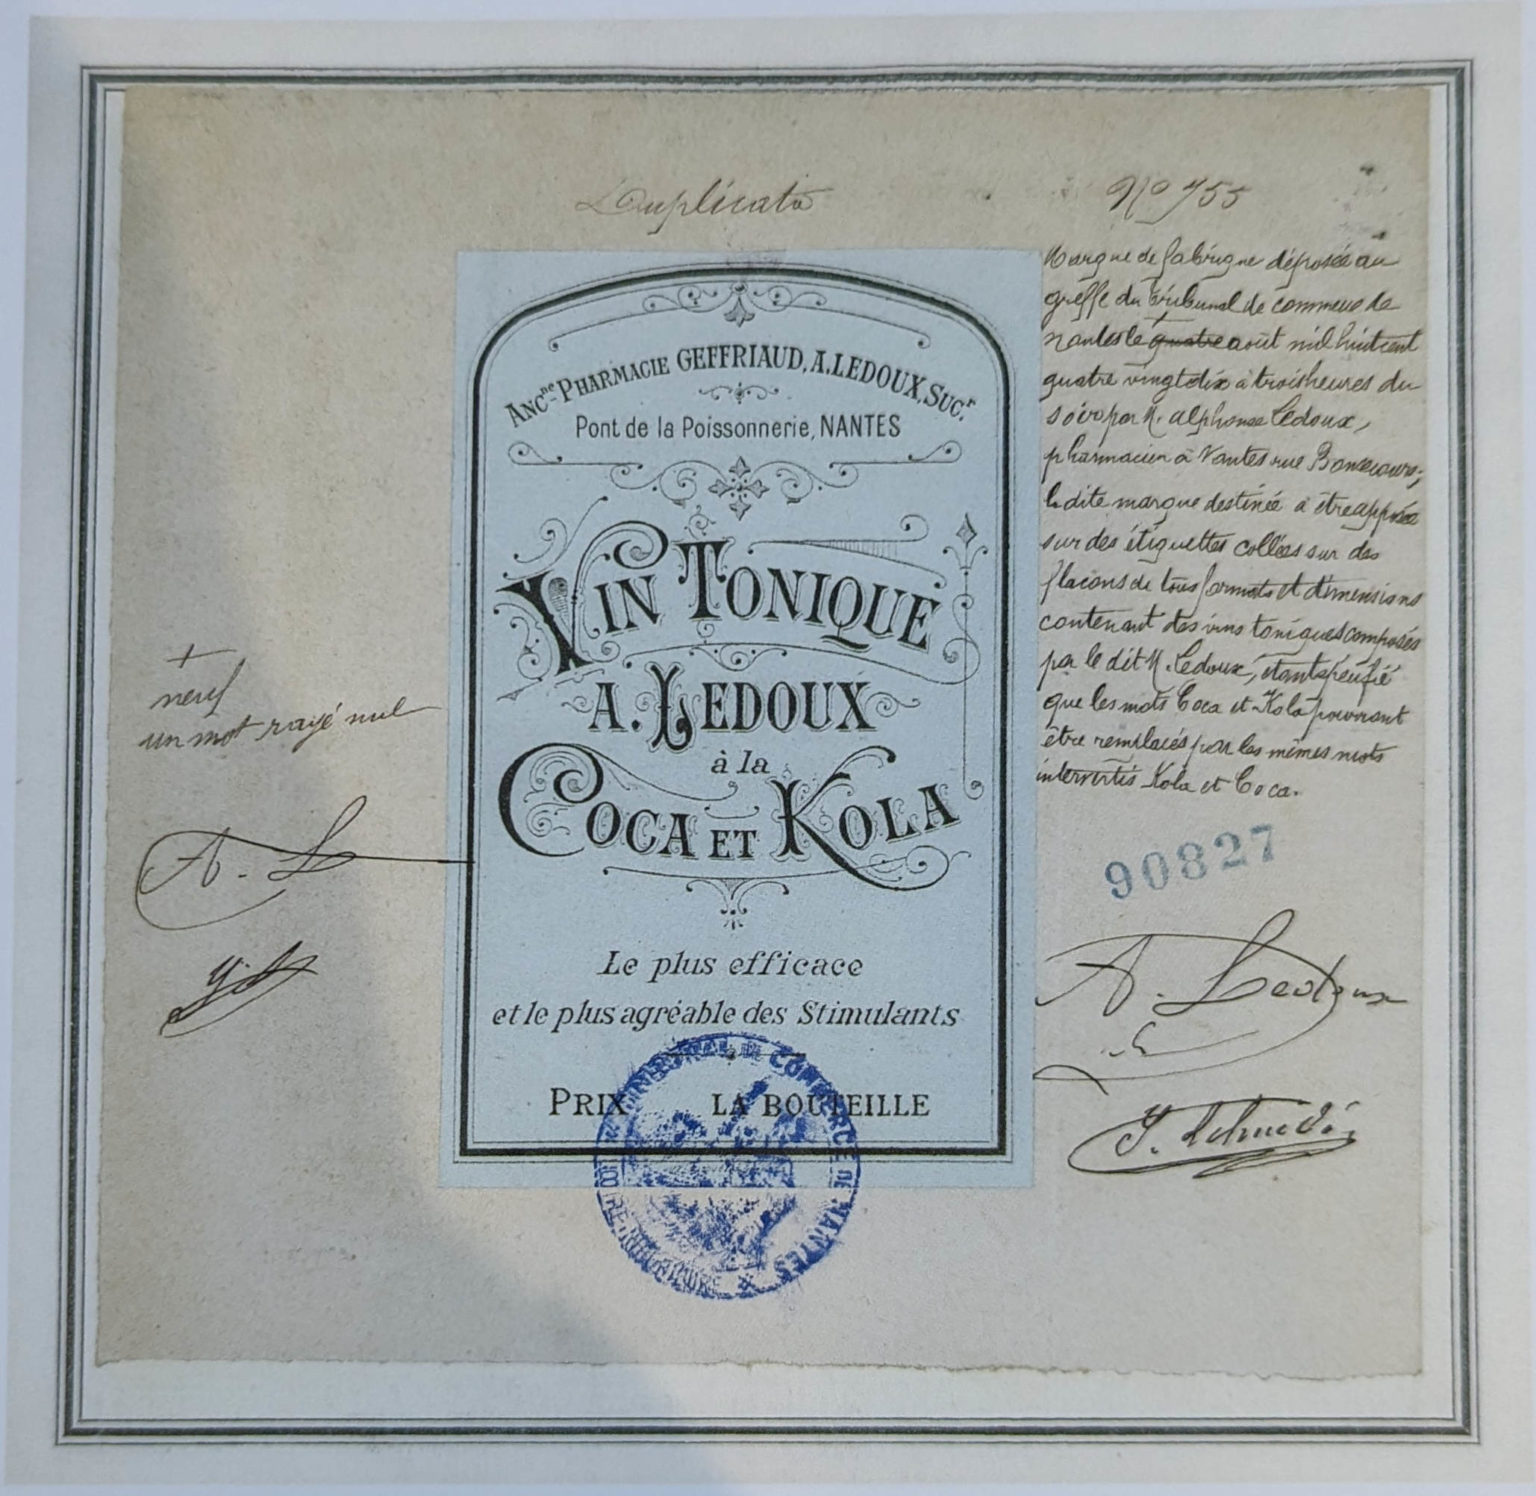 Duplicata
No 755
Ancne Pharmacie GEFFRIAUD, A. LEDOUX, Sucr
Pont de la Poissonnerie, NANTES
VIN TONIQUE
A. LEDOUX
à la
COCA ET KOLA
Le plus efficace
et le plus agréable des Stimulants
PRIX LA BOUTEILLE
TRIBUNAL DE COMMERCE DE NANTES
Marque de fabrique déposée au
greffe du Tribunal de commerce de
Nantes le + quatre août mil huit cent
quatre vingt dix à trois heures du
soir par M. Alphonse Ledoux,
pharmacien à Nantes rue Bonsecours,
la dite marque destinée à être apposée
sur des étiquettes collées sur des
flacons de tous formats et dimensions
contenant des vins toniques composés
par le dit M. Ledoux, étant spécifié
que les mots Coca et Kola pourront
être remplacés par les mêmes mots
intervertis Kola et Coca.
90827
A. Ledoux
+
neuf
un mot rayé nul
A. L